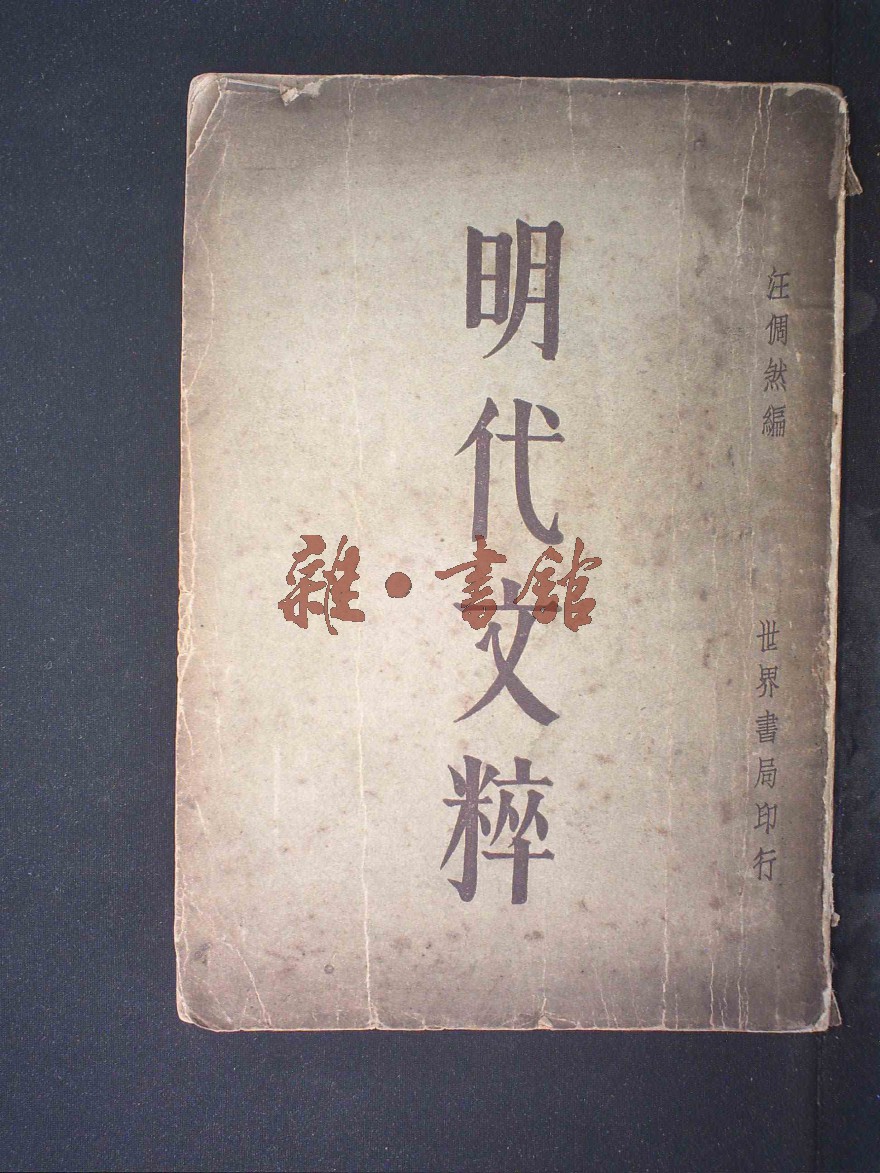 汪倜然編
世界書局印行
明代文粹
雜·書館